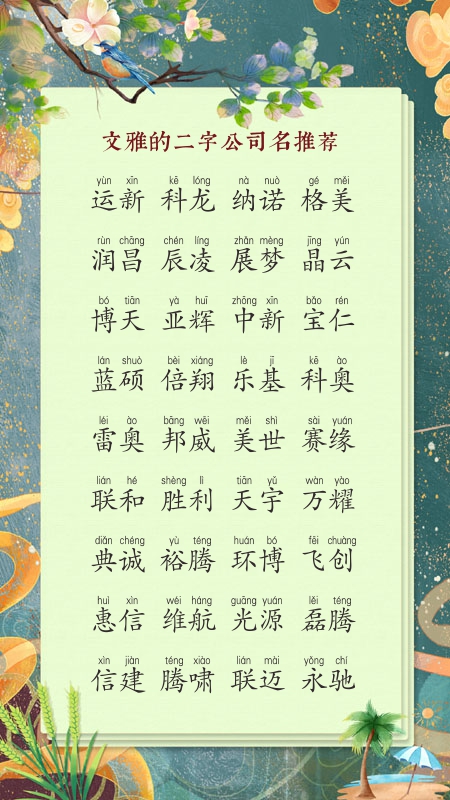 文雅的二字公司名推荐
yùn xīn kē lóng nà nuò gé měi
运新 科龙 纳诺 格美
rùn chāng chén líng zhǎn mèng jīng yún
润昌 辰凌 展梦 晶云
bó tiān yà huī zhōng xīn bǎo rén
博天 亚辉 中新 宝仁
lán shuò bèi xiáng lè jī kē ào
蓝硕 倍翔 乐基 科奥
léi ào bāng wēi měi shì sài yuán
雷奥 邦威 美世 赛缘
lián hé shèng lì tiān yǔ wàn yào
联和 胜利 天宇 万耀
diǎn chéng yù téng huán bó fēi chuàng
典诚 裕腾 环博 飞创
huì xìn wéi háng guāng yuán lěi téng
惠信 维航 光源 磊腾
xìn jiàn téng xiào lián mài yǒng chí
信建 腾啸 联迈 永驰